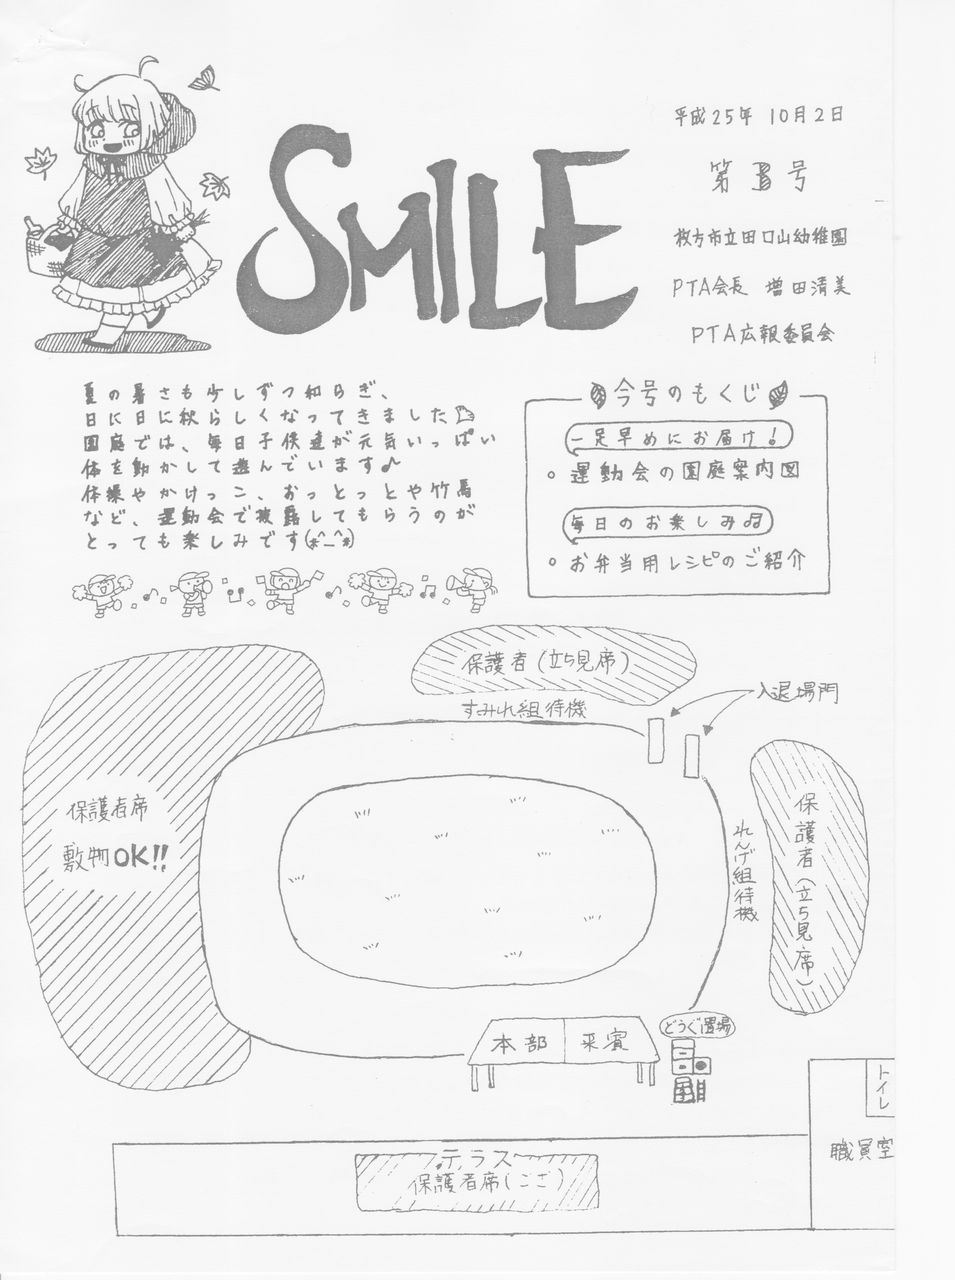 SMILE
平成25年 10月2日
第 号
枚方市立田口山幼稚園
PTA会長 増田清美
PTA広報委員会
夏の暑さも少しずつ和らぎ、
日に日に秋らしくなってきました
園庭では、毎日子供達が元気いっぱい
体を動かして遊んでいます♪
体操やかけっこ、おっとっとや竹馬
など、運動会で披露してもらうのが
とっても楽しみです(*^_^*)
今号のもくじ
一足早めにお届け!
○ 運動会の園庭案内図
毎日のお楽しみ♫
○ お弁当用レシピのご紹介
保護者(立ち見席)
すみれ組待機
入退場門
保護者席
敷物OK!!
れんげ組待機
保護者(立ち見席)
どうぐ置場
本部 来賓
トイレ
職員室
テラス
保護者席(ござ)